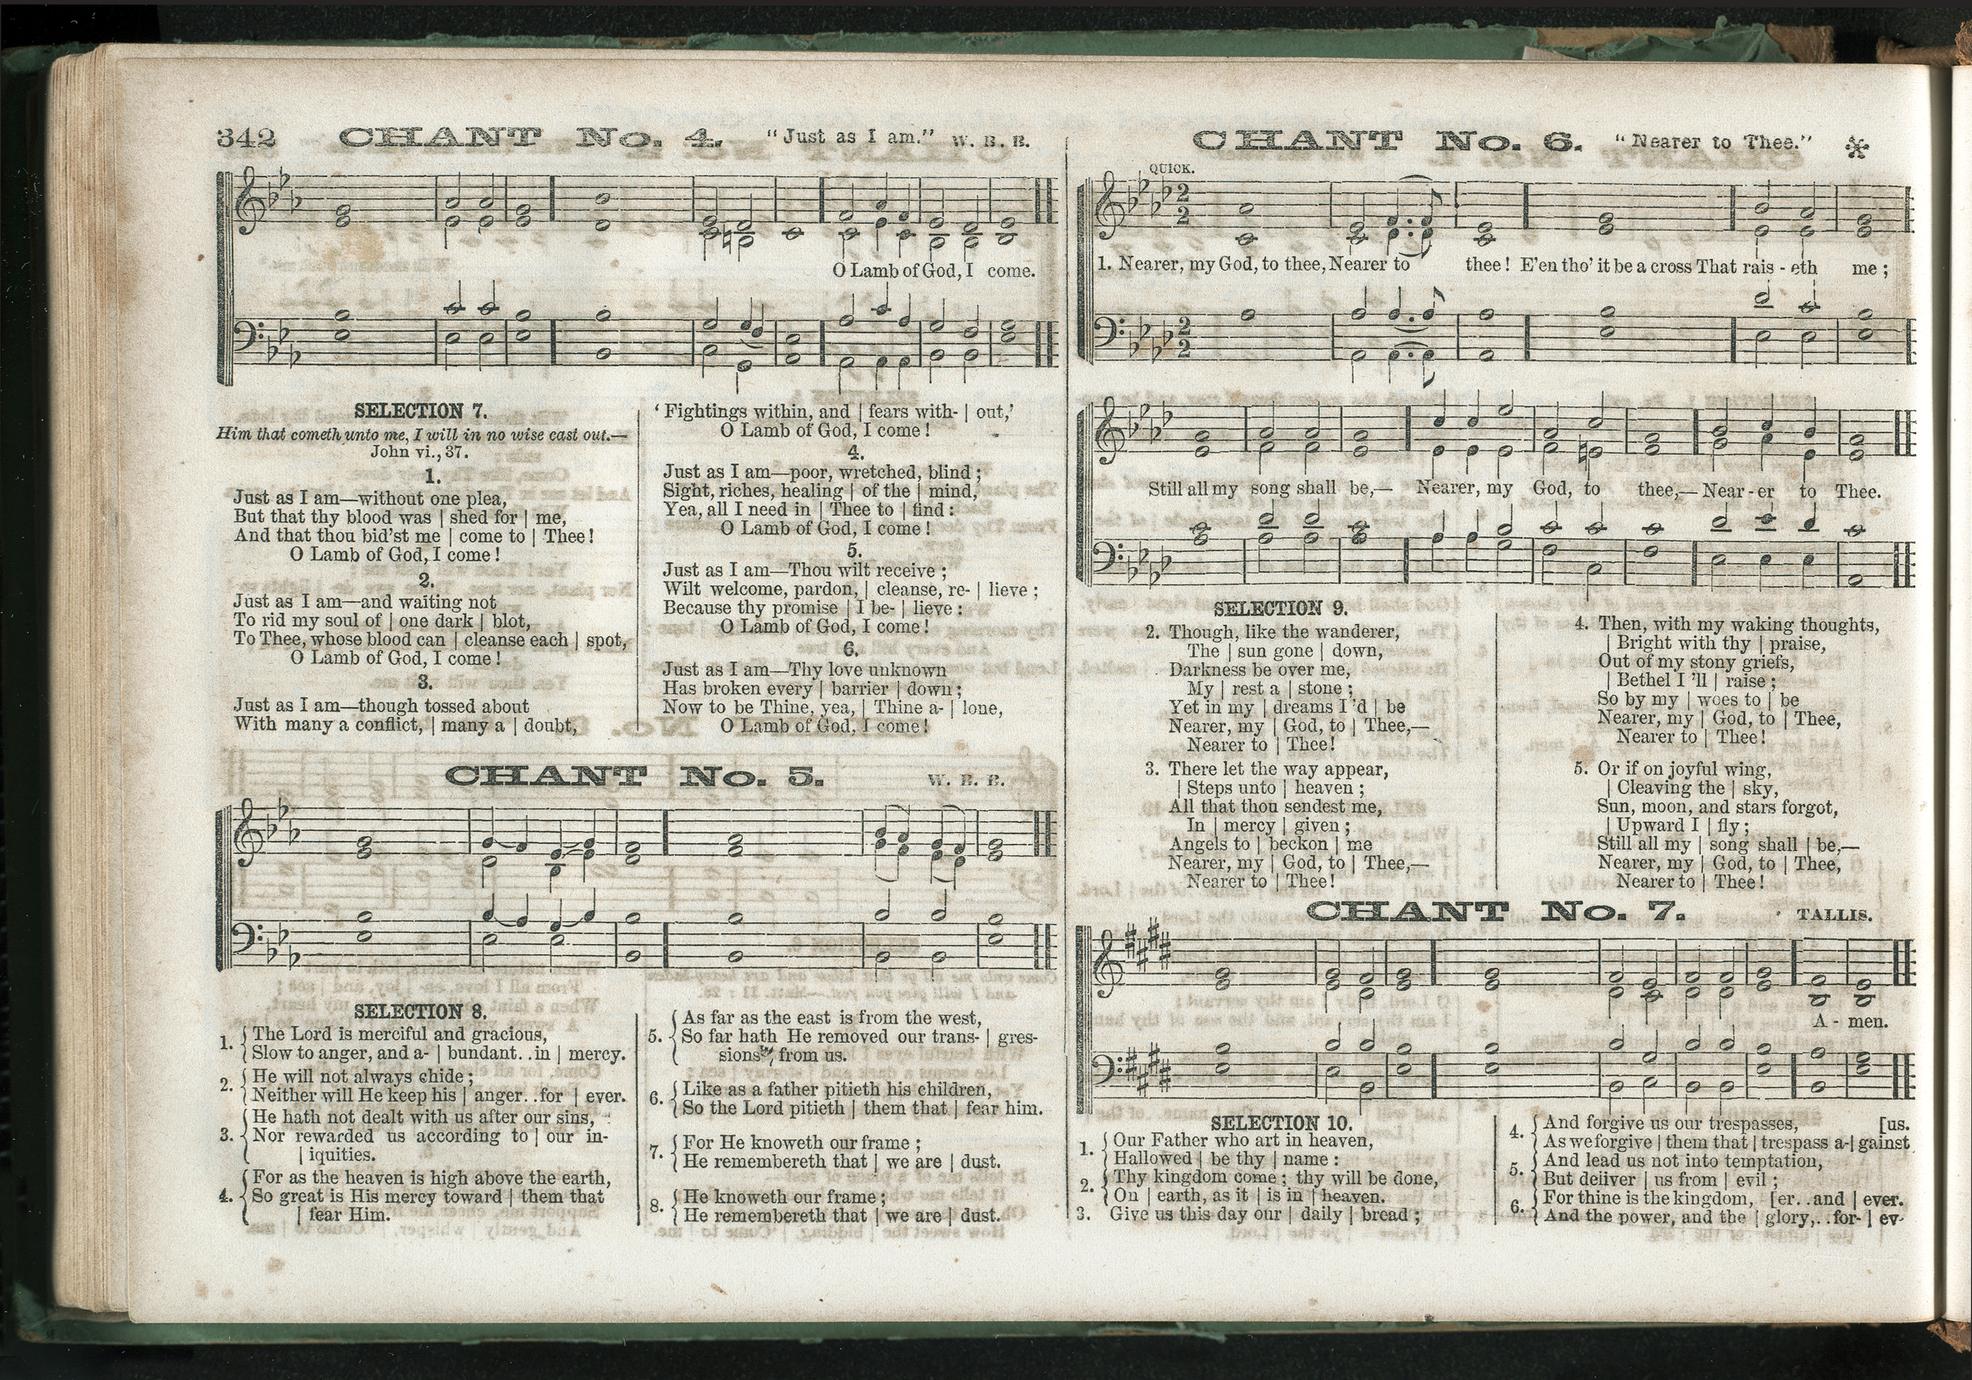 342 CHANT No. 4. "Just as I am." W. B. B.
O Lamb of God, I come.
SELECTION 7.
Him that cometh unto me, I will in no wise cast out.—
John vi., 37.
1.
Just as I am—without one plea,
But that thy blood was | shed for | me,
And that thou bid'st me | come to | Thee!
O Lamb of God, I come!
2.
Just as I am—and waiting not
To rid my soul of | one dark | blot,
To Thee, whose blood can | cleanse each | spot,
O Lamb of God, I come!
3.
Just as I am—though tossed about
With many a conflict, | many a | doubt,
'Fightings within, and | fears with- | out,'
O Lamb of God, I come!
4.
Just as I am—poor, wretched, blind;
Sight, riches, healing | of the | mind,
Yea, all I need in | Thee to | find:
O Lamb of God, I come!
5.
Just as I am—Thou wilt receive;
Wilt welcome, pardon, | cleanse, re- | lieve;
Because thy promise | I be- | lieve:
O Lamb of God, I come!
6.
Just as I am—Thy love unknown
Has broken every | barrier | down;
Now to be Thine, yea, | Thine a- | lone,
O Lamb of God, I come!
CHANT No. 5. W. B. B.
SELECTION 8.
1. The Lord is merciful and gracious,
Slow to anger, and a- | bundant. . in | mercy.
2. He will not always chide;
Neither will He keep his | anger. . for | ever.
3. He hath not dealt with us after our sins,
Nor rewarded us according to | our in-
| iquities.
4. For as the heaven is high above the earth,
So great is His mercy toward | them that
| fear Him.
5. As far as the east is from the west,
So far hath He removed our trans- | gres-
sions from us.
6. Like as a father pitieth his children,
So the Lord pitieth | them that | fear him.
7. For He knoweth our frame;
He remembereth that | we are | dust.
8. He knoweth our frame;
He remembereth that | we are | dust.
CHANT No. 6. "Nearer to Thee." *
QUICK.
1. Nearer, my God, to thee, Nearer to thee! E'en tho' it be a cross That rais - eth me;
Still all my song shall be,— Nearer, my God, to thee,— Near - er to Thee.
SELECTION 9.
2. Though, like the wanderer,
The | sun gone | down,
Darkness be over me,
My | rest a | stone;
Yet in my | dreams I'd | be
Nearer, my | God, to | Thee,—
Nearer to | Thee!
3. There let the way appear,
| Steps unto | heaven;
All that thou sendest me,
In | mercy | given;
Angels to | beckon | me
Nearer, my | God, to | Thee,—
Nearer to | Thee!
4. Then, with my waking thoughts,
| Bright with thy | praise,
Out of my stony griefs,
| Bethel I'll | raise;
So by my | woes to | be
Nearer, my | God, to | Thee,
Nearer to | Thee!
5. Or if on joyful wing,
| Cleaving the | sky,
Sun, moon, and stars forgot,
| Upward I | fly;
Still all my | song shall | be,—
Nearer, my | God, to | Thee,
Nearer to | Thee!
CHANT No. 7. TALLIS.
A - men.
SELECTION 10.
1. Our Father who art in heaven,
Hallowed | be thy | name:
2. Thy kingdom come; thy will be done,
On | earth, as it | is in | heaven.
3. Give us this day our | daily | bread;
4. And forgive us our trespasses, [us.
As we forgive | them that | trespass a- | gainst
5. And lead us not into temptation,
But deliver | us from | evil;
6. For thine is the kingdom, [er. . and | ever.
And the power, and the | glory,. . for- | ev-